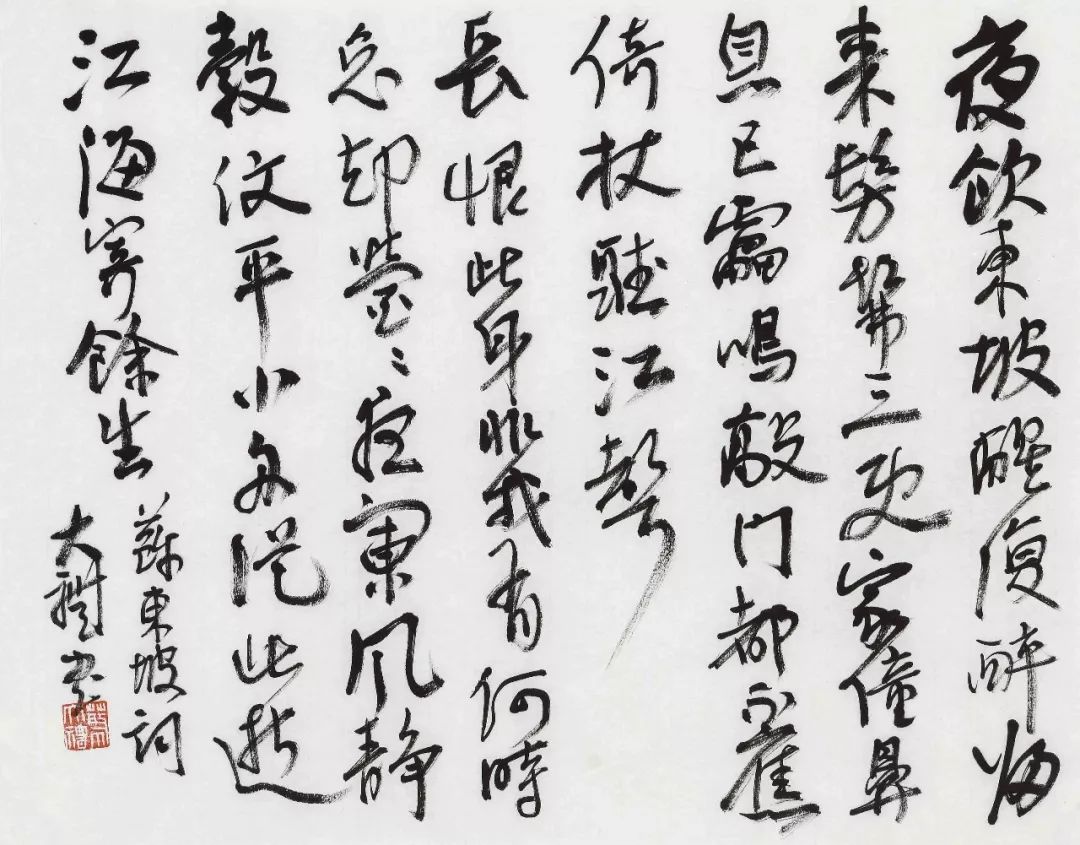 夜飲東坡醒復醉歸
来髣髴三更家僮鼻
息已靁鳴敲門都不應
倚杖聽江聲
長恨此身非我有何時
忘却營〻夜闌風静
縠紋平小舟從此逝
江海寄餘生
蘇東坡詞
大樹書